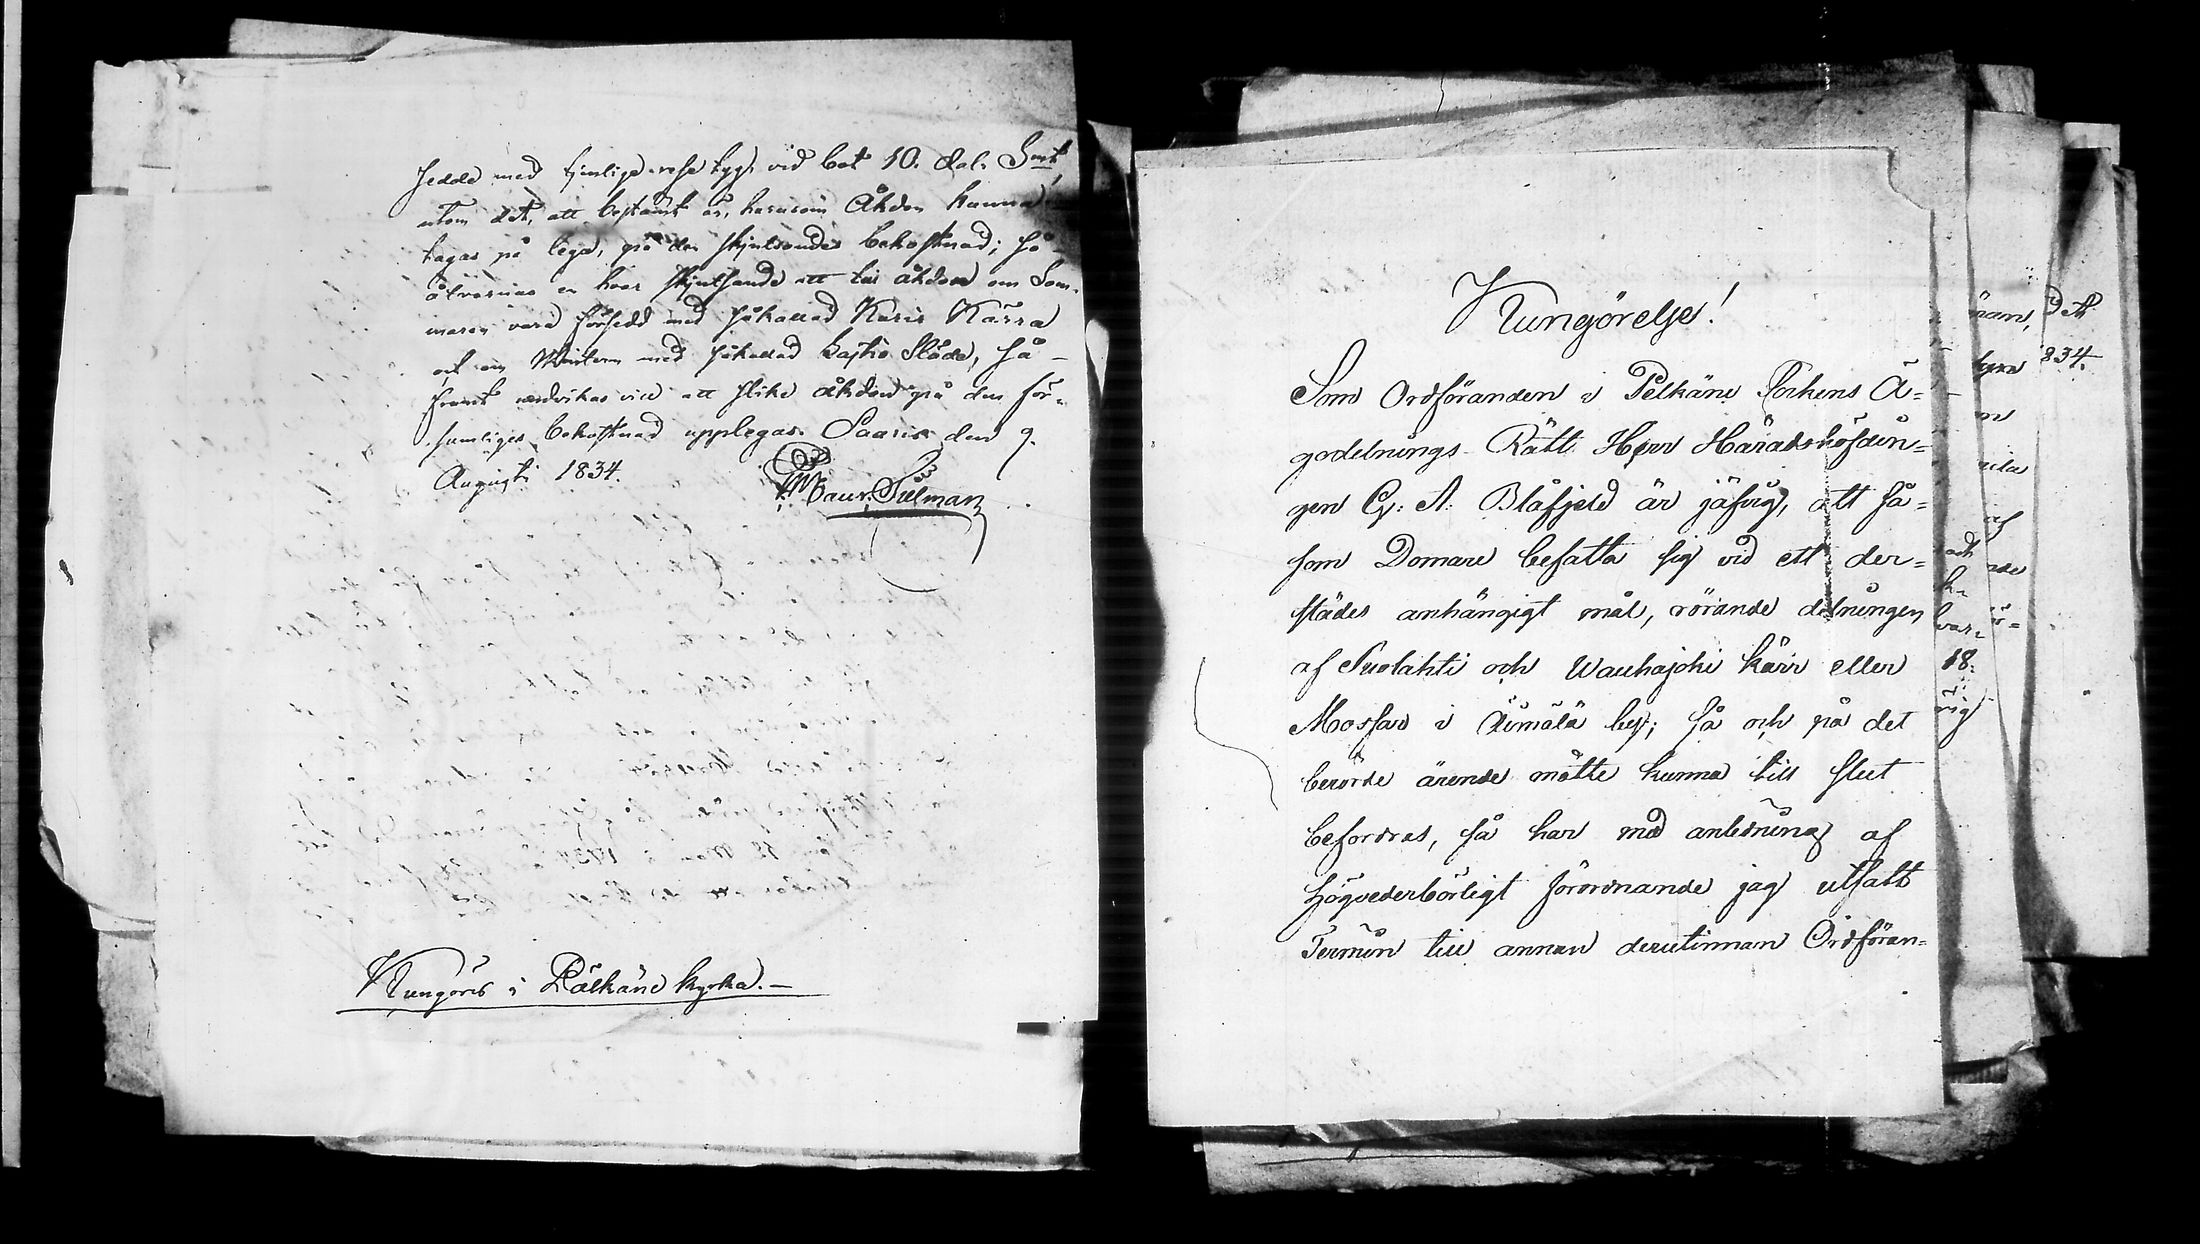 sedde med tjenlige rese tyg, vid bot 10. dal. Smt,
utom det, att bestämt är, hurusom Åkdon kunna
tagas på lega, på den skjutsandes bekostnad; så
åtvarnas en hvar skjutsande att låta åkdon om Som-
maren vara försedd med såkallad Kärra
och om Wintern med såkallad Släde, så-
framt undvikas vill att slike åkdon på den för-
sumliges bekostnad upplegas. Saaris den 9.
Augusti 1834.
Kungöres i Pälkäne kyrka.-
Kungörelse!
Som Ordföranden i Pelkäne Sockens Ä-
godelnings Rätt Herr Häradshöfdin-
gen G: A: Blåfjeld är jäfvig, att så-
som Domare befatta sig vid ett der-
städes anhängigt mål, rörande delningen
af Suolahti och Wauhajoki kärr eller
Mossar i by; så och på det
berörde ärende måtte kunna till slut
befordras, så har med anledning af
högvederbörligt förordnande jag utsatt
Termin till annan derutinnan Ordföran-
det
834.
af
18.